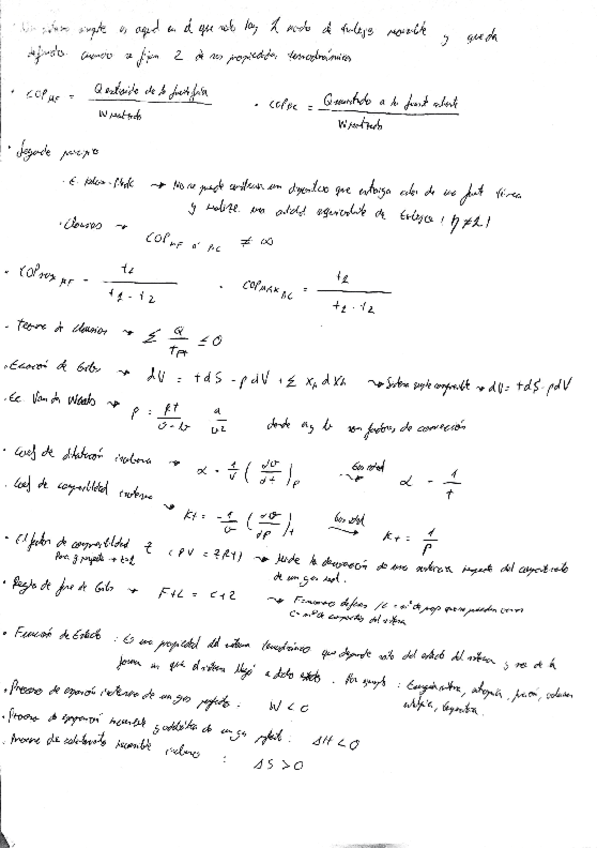 · Un sistema simple es aquel en el que solo hay 1 modo de trabajo reversible y queda
definido cuando se fijan 2 de sus propiedades termodinámicas
· COP MF = Q extraido de la fuente fría / W neto · COP BC = Q suministrado a la fuente caliente / W
· Segundo principio
· E. Kelvin-Planck → No se puede construir un dispositivo que extraiga calor de una fuente térmica
y realice una cantidad equivalente de trabajo (η≠1)
· Clausius → COP MF o BC ≠ ∞
· COP MAX MF = t2 / t1 - t2 · COP MAX BC = t1 / t1 - t2
· Teorema de Clausius → Σ Q / T ≤ 0
· Ecuación de Gibbs → dU = tdS - pdV + Σ Xk dXk → Sistema simple compresible → dU = tdS - pdV
· Ec. Van der Waals → p = Rt / v - b a / v2 donde a y b son factores de corrección
· Coef de dilatación isobara → α = 1/V (dv/dt)p Gas ideal → α = 1/t
· Coef de compresibilidad isoterma → Kt = -1/v (dv/dp)t Gas ideal → Kt = 1/p
· El factor de compresibilidad Z (PV = ZRt) → Mide la desviación de una sustancia respecto del comportamiento
Para g perfecto → Z=1 de un gas real.
· Regla de fase de Gibbs → F+L = C+2 → F= número de fases / L = nº de prop que se pueden variar
C= nº de componentes del sistema
· Función de Estado : Es una propiedad del sistema termodinámico que depende solo del estado del sistema, y no de la
forma en que el sistema llegó a dicho estado. Por ejemplo : Energía interna, entropía, presión, volumen
entalpía, temperatura.
· Proceso de expansión isotermo de un gas perfecto : W < 0
· Proceso de expansión reversible y adiabática de un gas perfecto : ΔH < 0
· Proceso de calentamiento reversible isobaro : ΔS > 0